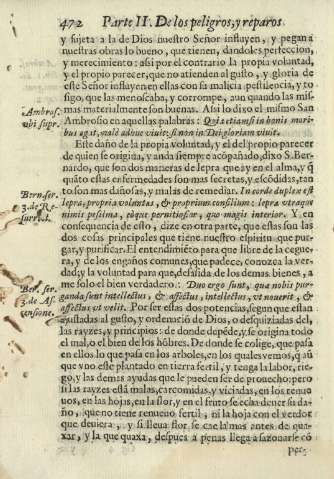 472 Parte II. De los peligros, y reparos
y sujeta a la de Dios nuestro Señor influyen, y pegan a
nuestras obras lo bueno, que tienen, dandoles perfeccion,
y merecimiento: assi por el contrario la propia voluntad,
y el propio parecer, que no atienden al gusto, y gloria de
este Señor influyen en ellas con su malicia pestilencia, y to-
sigo, que las menoscaba, y corrompe, aun quando las mis-
mas materialmente son buenas. Assi lo dixo el mismo San
Ambros.
vbi supr.
Ambrosio en aquellas palabras: Qui etiamsi in bonis moribus
agat, malè adhuc viuit; si non in Dei gloriam viuit.
Este daño de la propia voluntad, y el del propio parecer
de quien se origina, y anda siempre acompañado, dixo S. Ber-
nardo, que son dos maneras de lepra que ay en el alma, y q̃
quãto estas enfermedades son mas secretas, y escõdidas, tan
to son mas dañosas, y malas de remediar. In corde duplex est
Bern. ser.
3. de Re-
surrect.
lepra; propria voluntas, & proprium consilium: lepra vtraque
nimis pessima, eòque pernitiosior, quo magis interior. Y en
consequencia de esto, dize en otra parte, que estas son las
dos cosas principales que tiene nuestro espiritu que pur-
gar, y purificar. El entendimiento para que libre de la cegue-
ra, y de los engaños comunes, que padece, conozca la ver-
dad; y la voluntad para que, desasida de los demas bienes, a
me solo el bien verdadero.: Duo ergo sunt, quæ nobis pur-
Ber. ser.
3. de As-
censione.
ganda sunt intellectus, & affectus, intellectus, vt nouerit, &
affectus vt velit. Por ser estas dos potencias, segun que estan
ajustadas al gusto, y ordenaciõ de Dios, o desquiziadas del,
las rayzes, y principios: de donde depẽde, y se origina todo
el mal, o el bien de los hõbres. De donde se colige, que pasa
en ellos lo que pasa en los arboles, en los quales vemos, q̃ aũ
que vno este plantado en tierra fertil, y tenga la labor, rie-
go, y las demas ayudas que le pueden ser de prouecho; pero
si las rayzes està malas, carcomidas, y viciadas, en los renue
uos, en las hojas, en la flor, y en el fruto se echa de ver su da-
ño, que no tiene renueuo fertil, ni la hoja con el verdor
que deuiera, y si lleua flor se cae la mas antes de qua-
xar, y la que quaxa, despues a penas llega a sazonarse cõ
per-